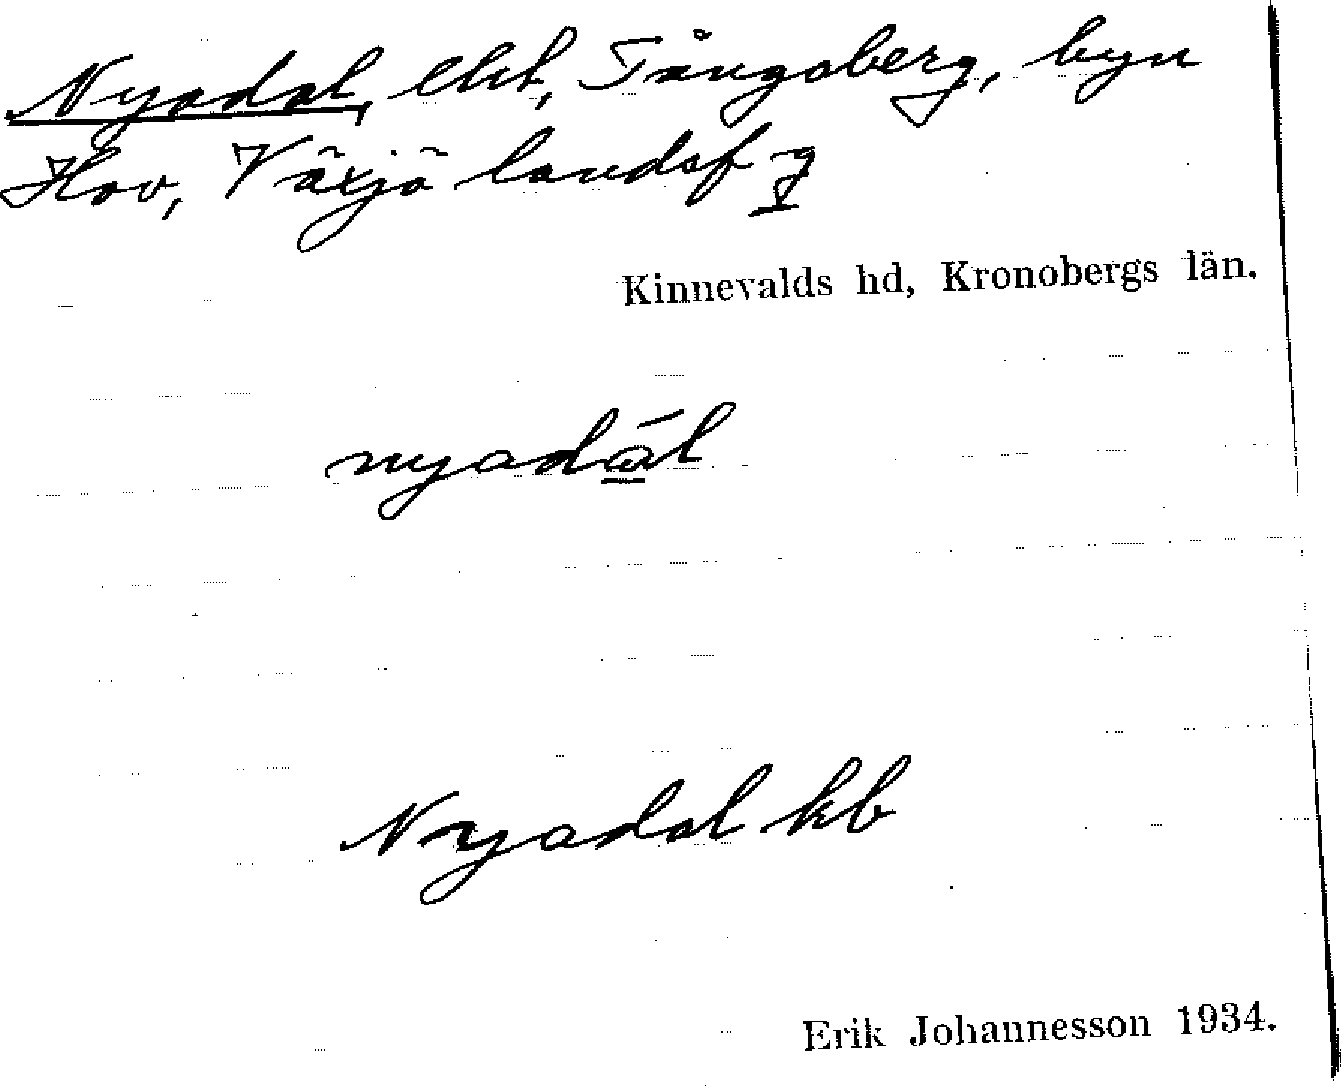 Nyadal, lht, Tångaberg, byn
Hov, Växjö landsf
Kinnevalds hd, Kronobergs län.
nyadál
Nyadal kb
Erik Johannesson 1934.